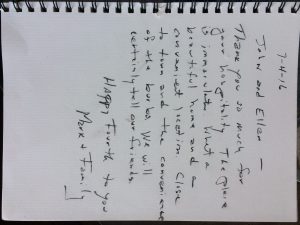 7-4-16
John and Ellen —
Thank you so much for
your hospitality. The place
is immaculate. What a
beautiful home and a
convenient location close
to town and the convenience
of the burbs. We will
certainly tell our friends.
Happy Fourth to you
Mark & Family